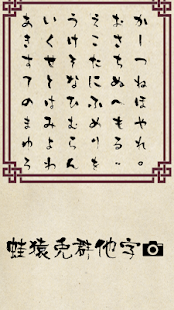 あいうえおか
きくけこさし
すせそたちつ
てとなにぬね
のはひふへほ
まみむめもや
ゆよらりるれ
ろわをん、。
蛙猿兎群他字